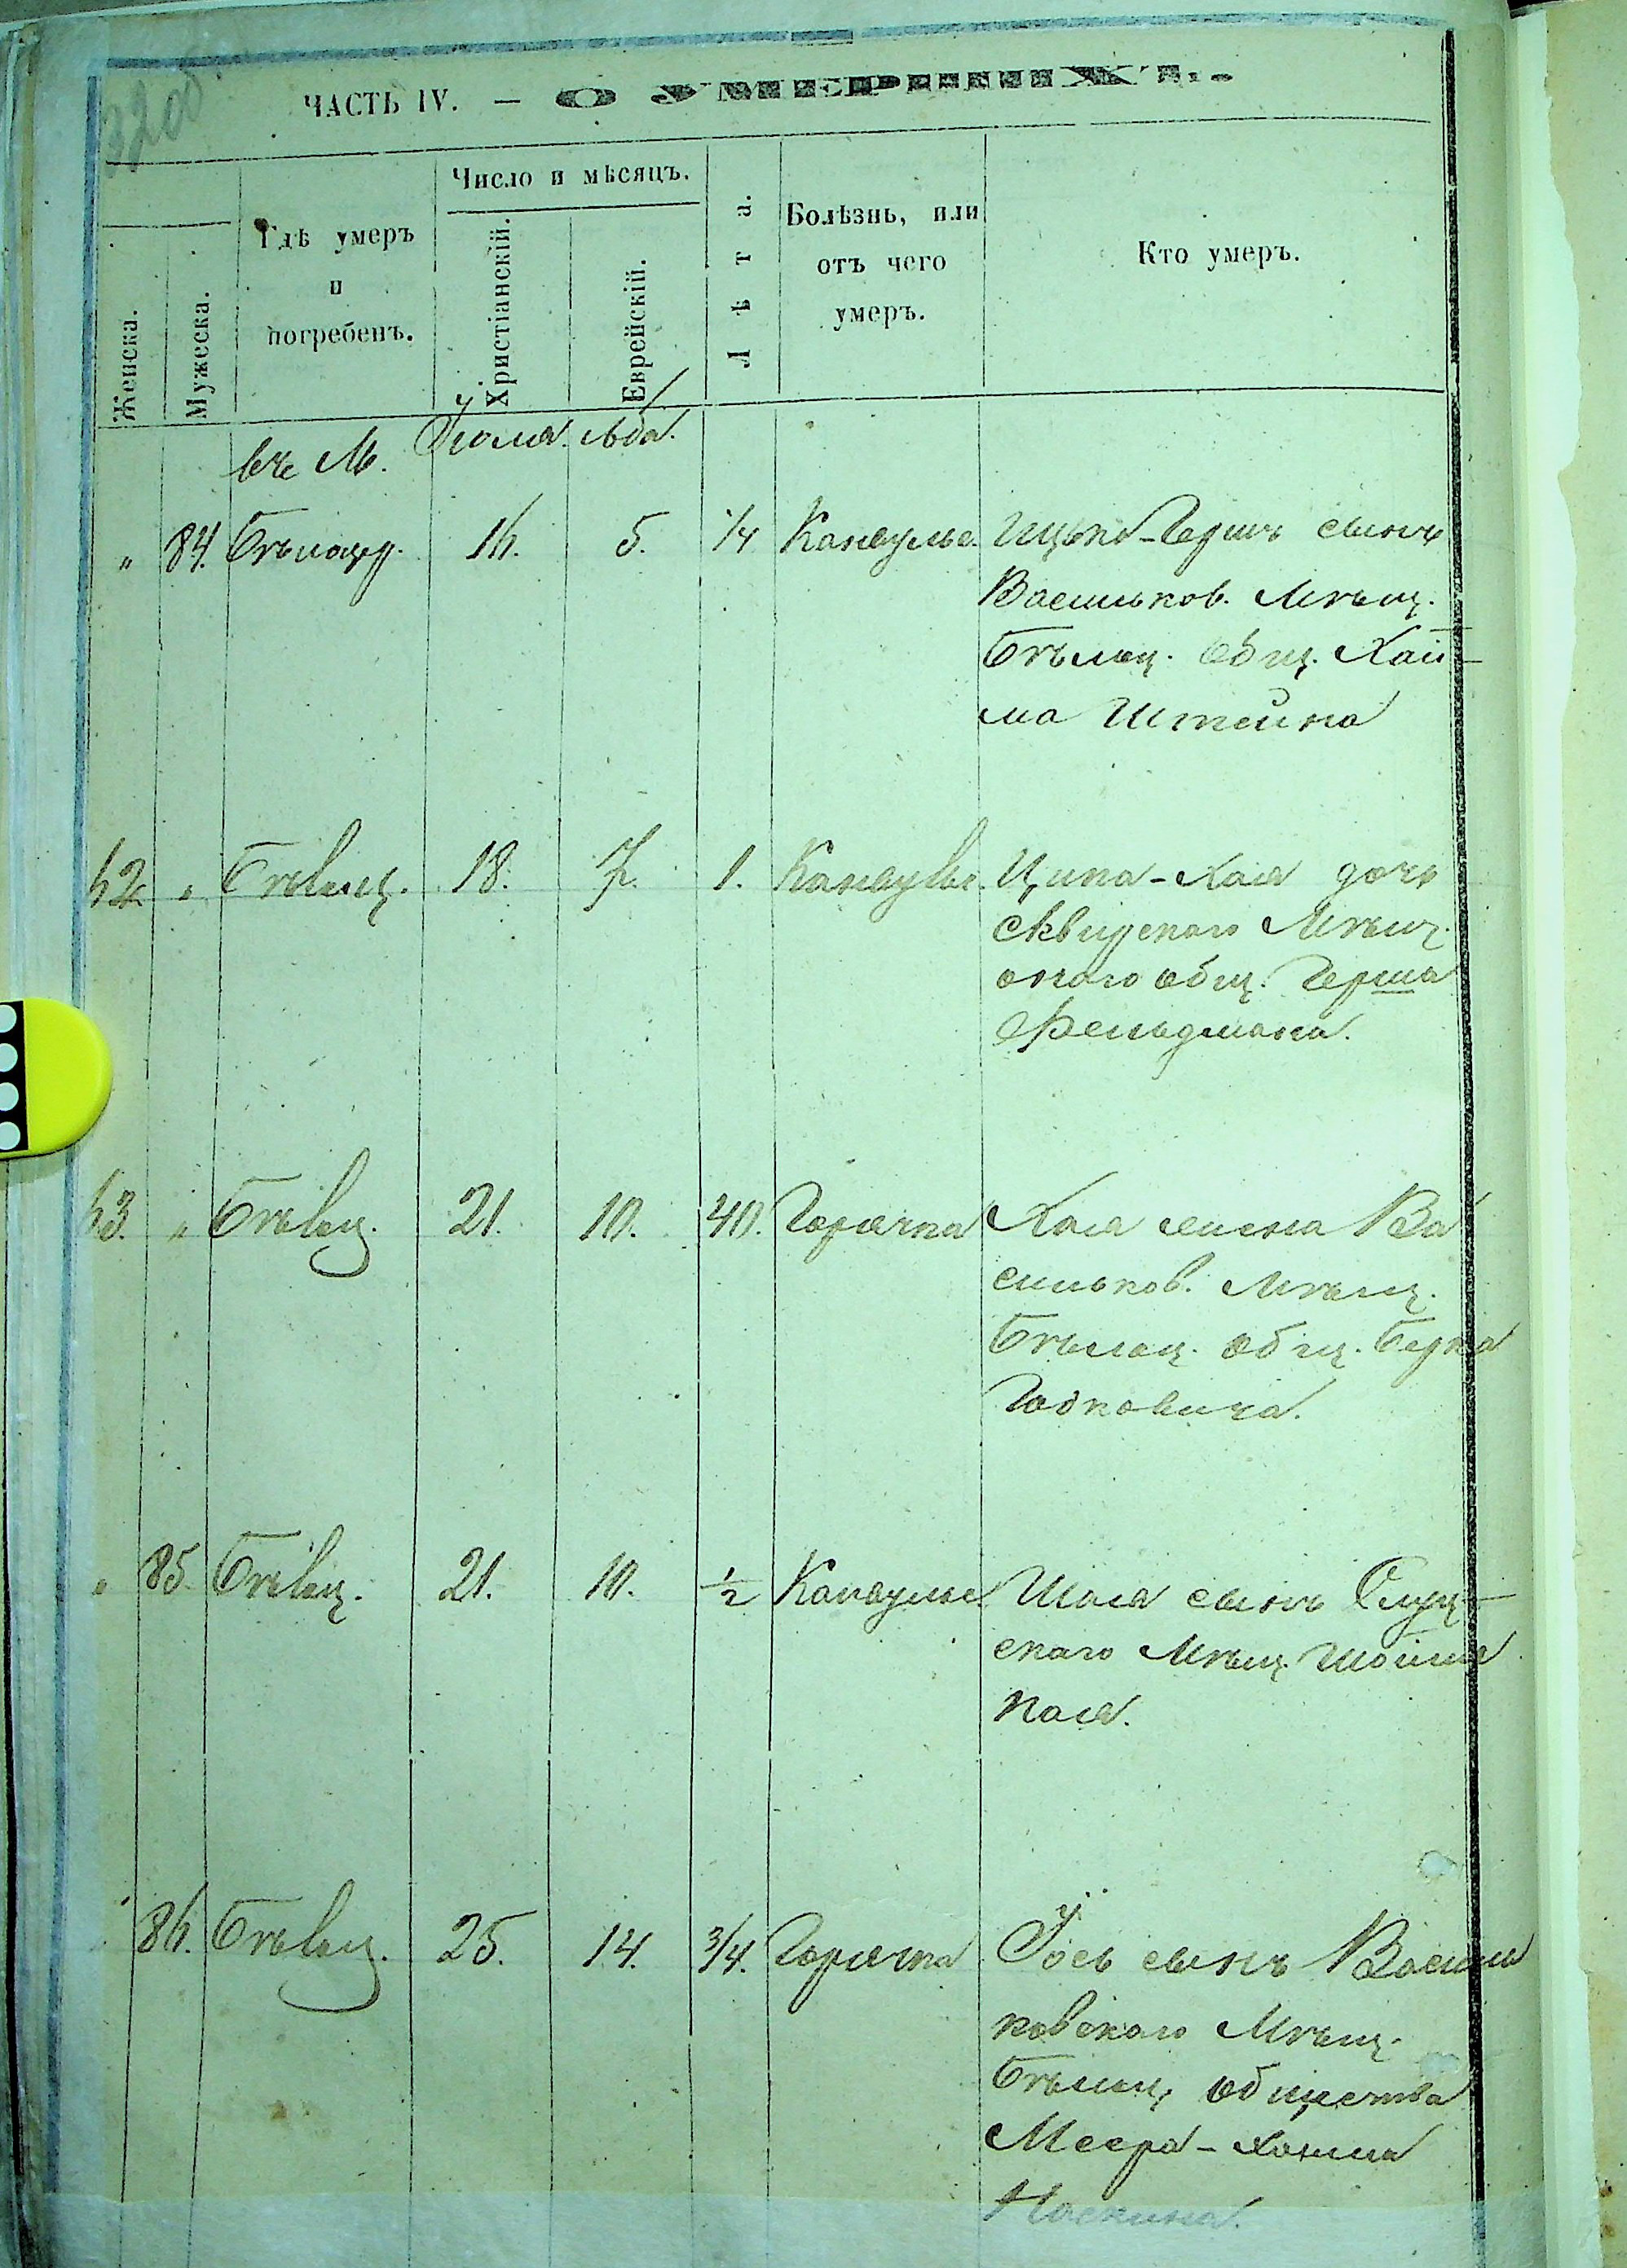 320об.
ЧАСТЬ IV. — О УМЕРШИХЪ.
Женска.
Мужеска.
Гдѣ умеръ
и
погребенъ.
Число и мѣсяцъ.
Христіанскій.
Еврейскій.
Лѣта.
Болѣзнь, или
отъ чего
умеръ.
Кто умеръ.
въ М. Іюля. Аба.
„ 84. Бѣлоцер. 16. 5. 1/4 Конвульс. Ицко-Гершъ сынъ
Васильков. Мѣщ.
Бѣлоц. Общ. Хаи-
ма Штейна
62 „ Бѣлоц. 18. 7. 1. Конвульс. Ципа-Хая дочь
Сквирскаго Мѣщ.
онаго общ. Герша
Фельдмана.
63. „ Бѣлоц. 21. 10. 40. Горячка Хая жена Ва
сильков. Мѣщ.
Бѣлоц. общ. Берка
„ 85. Бѣлоц. 21. 10. 1/2 Конвульс. Шая сынъ Слуц-
скаго Мѣщ.
„ 86. Бѣлоц. 25. 14. 3/4. Горячка Іось сынъ Василь
ковскаго Мѣщ.
Бѣлоц. общества
Меера-Хаима